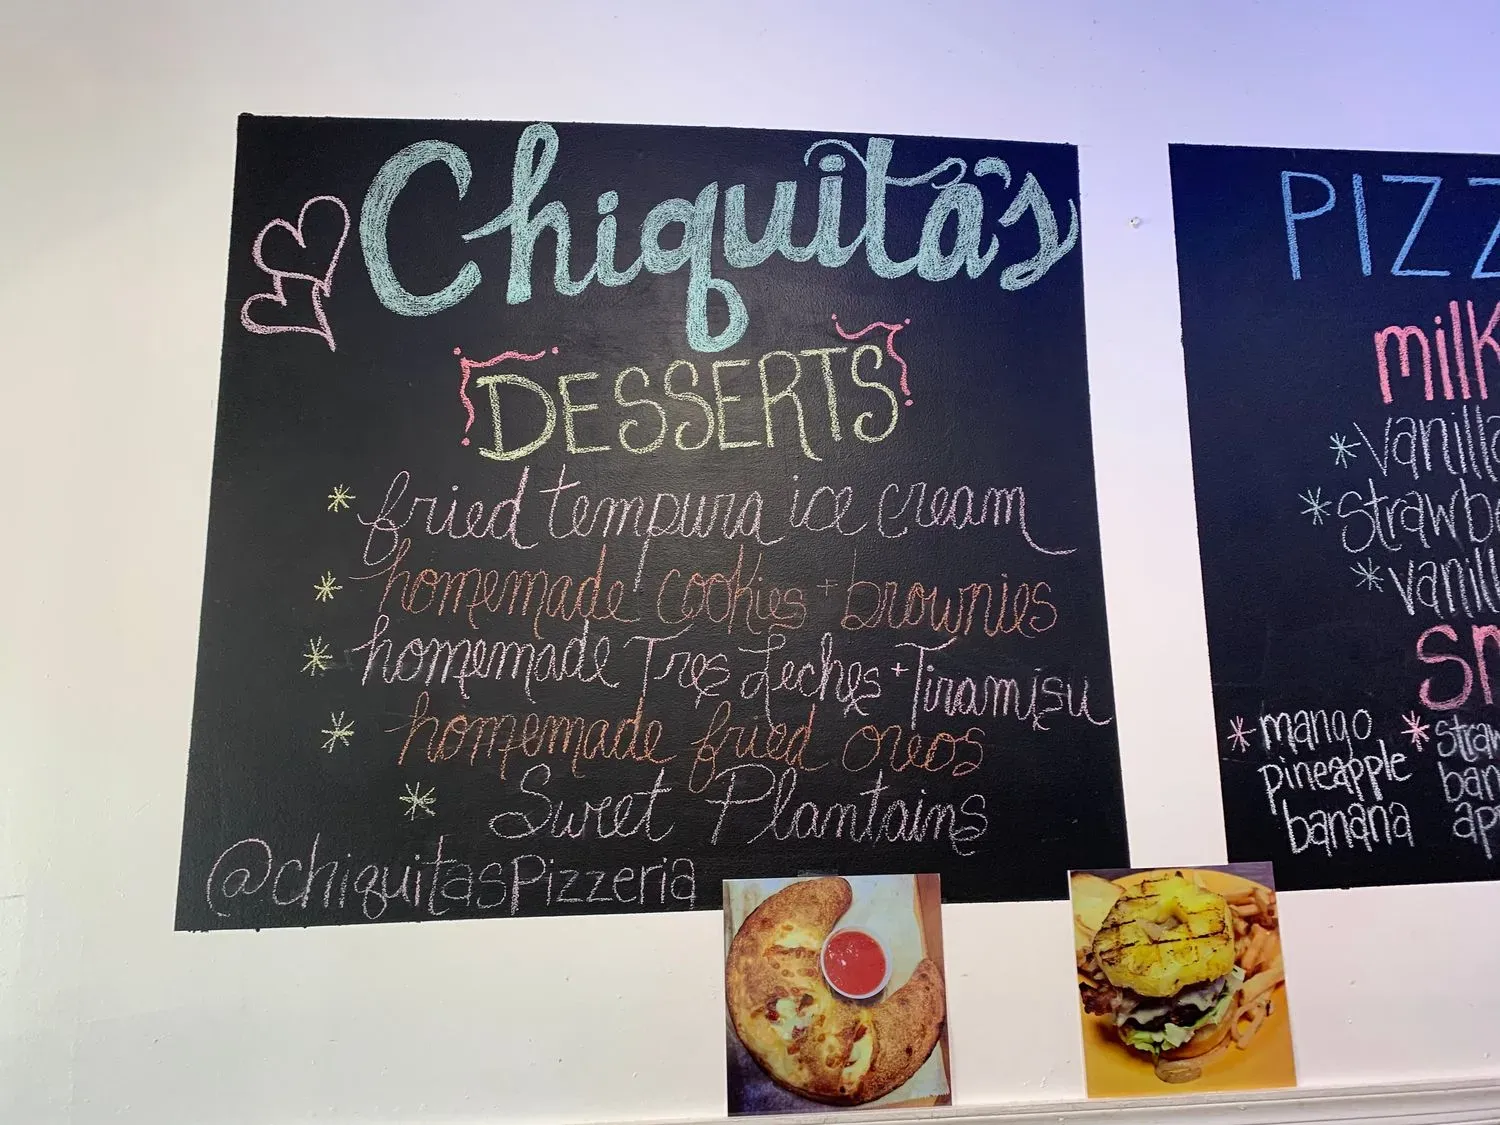 Chiquita's
DESSERTS
* fried tempura ice cream
* homemade cookies + brownies
* homemade Tres Leches + Tiramisu
* homemade fried oreos
* Sweet Plantains
@chiquitaspizzeria
PIZZ
milk
* vanilla
* strawbe
* vanill
sm
* mango
pineapple
banana
* straw
ban
app